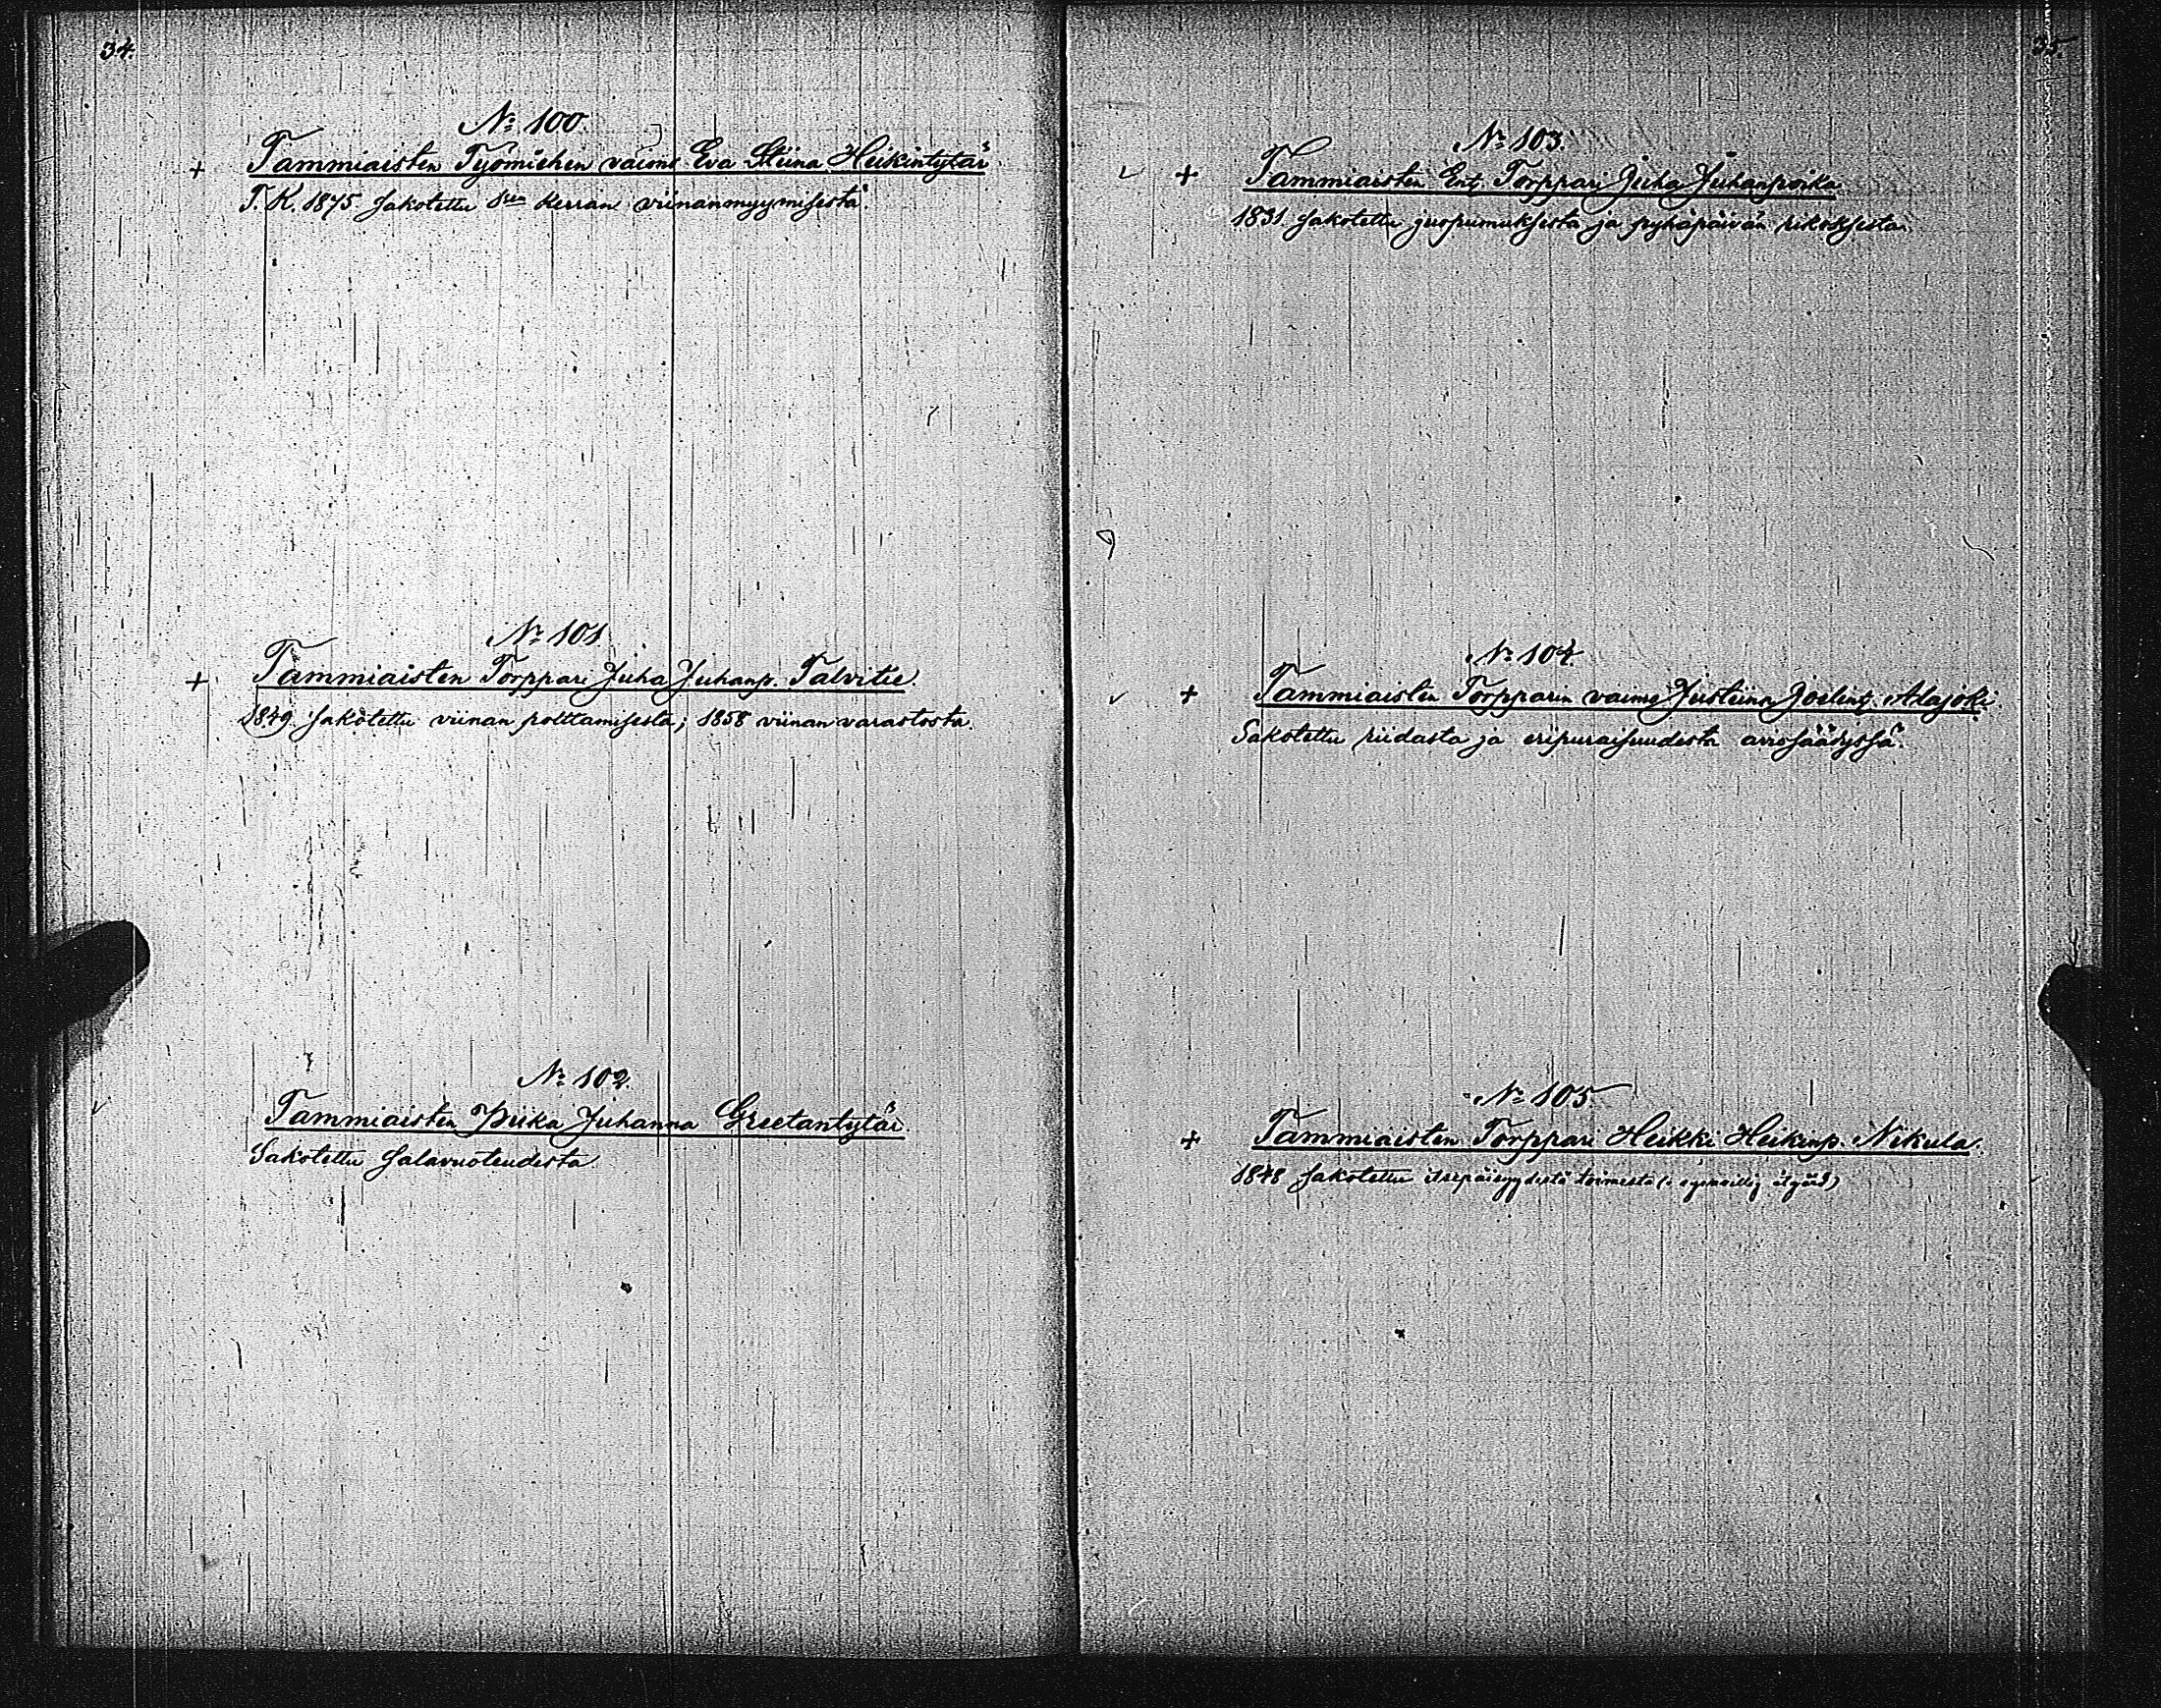 34.
No 100.
+ Tammiaisten Työmiehen vaimo Eva Stiina Heikintytär
T. K. 1875 sakotettu 1sen kerran viinanmyymisestä.
No 101.
+ Tammiaisten Torppari Juha Juhanp. Talvitie.
1849 sakotettu viinan polttamisesta; 1858 viinan varastosta.
No 102.
Tammiaisten Piika Juhanna Greetantytär
Sakotettu salavuoteudesta
35
No 103.
+ Tammiaisten Ent. Torppari Juha Juhanpoika
1831 sakotettu juopumuksesta ja pyhäpäivän rikoksesta.
No 104.
+ Tammiaisten Torpparin vaimo Justiina Joelint. Alajoki
Sakotettu riidasta ja eripuraisuudesta aviosäädyssä.
No 105.
+ Tammiaisten Torppari Heikki Heikinp. Nikula.
1848 sakotettu itsepäisyydestä toimesta (: egenvillig åtgärd)